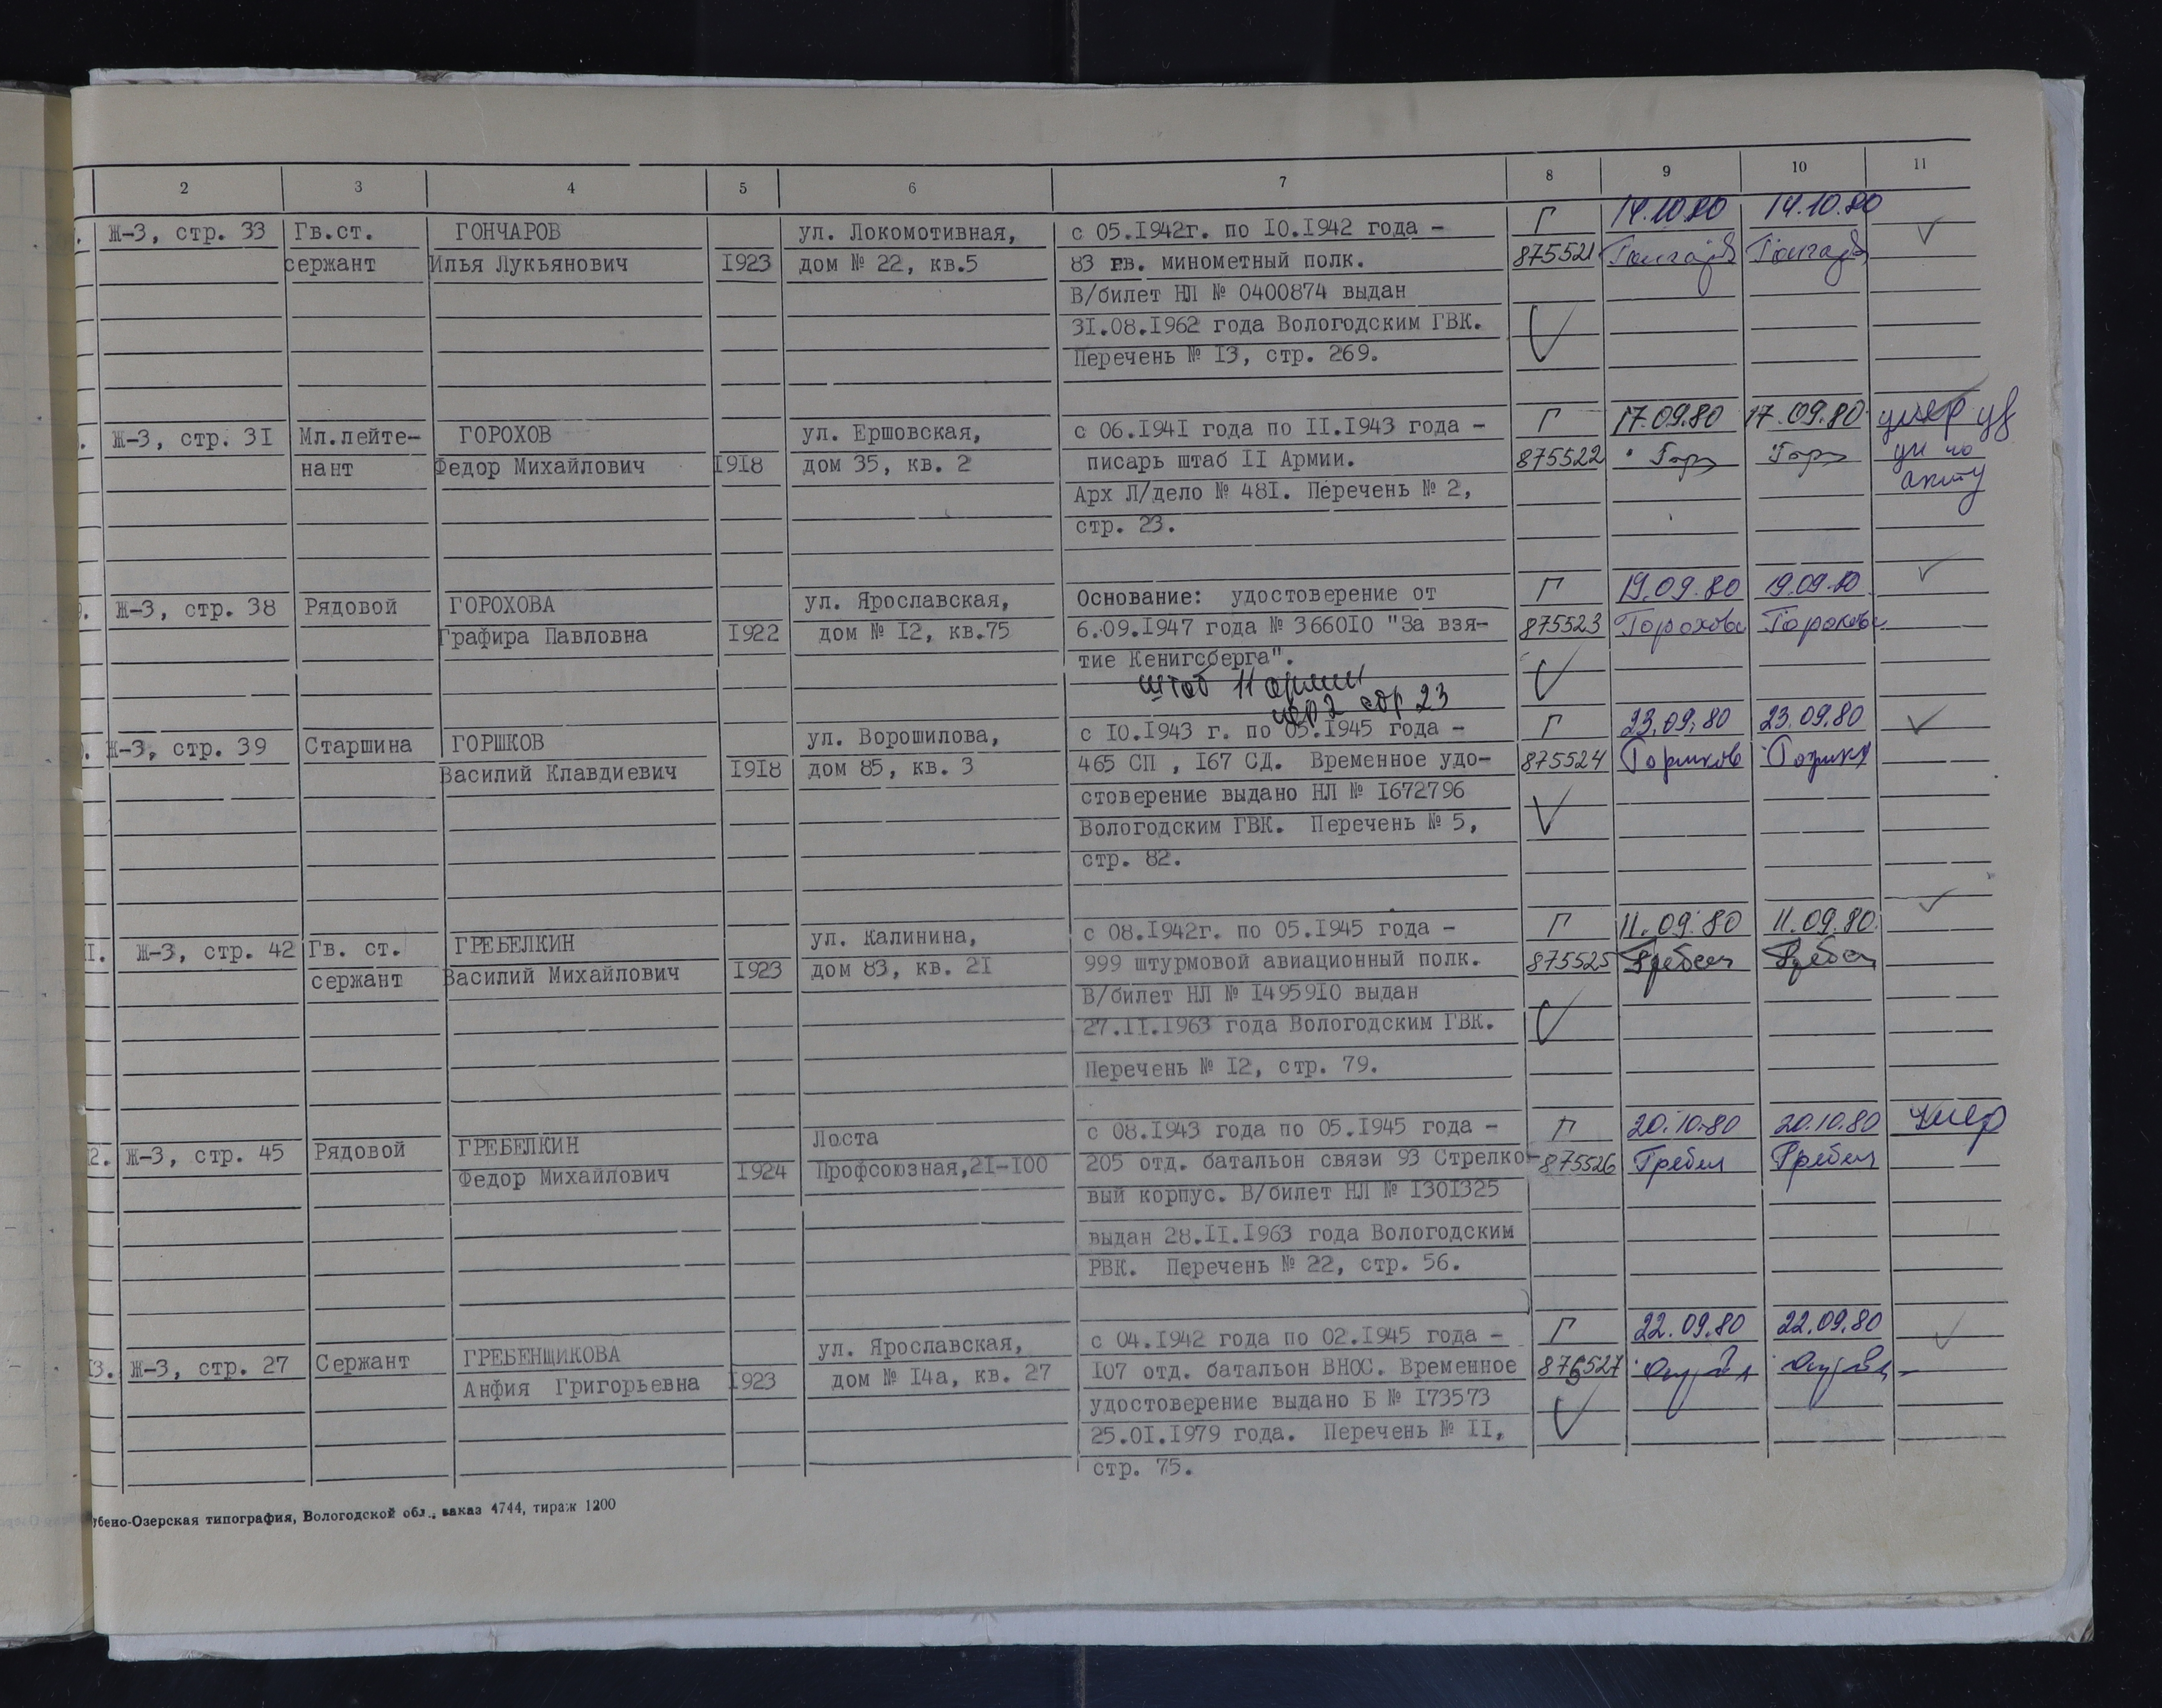 2 3 4 5 6 7 8 9 10 11
Ж-3, стр. 33 Гв.ст. ГОНЧАРОВ ул. Локомотивная, с 05.1942г. по 10.1942 года - Г 14.10.80 14.10.80
сержант Илья Лукьянович 1923 дом № 22, кв.5 83 гв. минометный полк. 875521
В/билет НЛ № 0400874 выдан
31.08.1962 года Вологодским ГВК.
Перечень № 13, стр. 269.
Ж-3, стр. 31 Мл.лейте- ГОРОХОВ ул. Ершовская, с 06.1941 года по 11.1943 года - Г 17.09.80 17.09.80 умер уд
нант Федор Михайлович 1918 дом 35, кв. 2 писарь штаб 11 Армии. 875522 Гор Гор по
Арх Л/дело № 481. Перечень № 2, акту
стр. 23.
9. Ж-3, стр. 38 Рядовой ГОРОХОВА ул. Ярославская, Основание: удостоверение от Г 19.09.80 19.09.80
Графира Павловна 1922 дом № 12, кв.75 6.09.1947 года № 366010 "За взя- 875523 Горохова Горохова
тие Кенигсберга".
штаб 11 армии
пер 2 стр 23
Ж-3, стр. 39 Старшина ГОРШКОВ ул. Ворошилова, с 10.1943 г. по 05.1945 года - Г 23.09.80 23.09.80
Василий Клавдиевич 1918 дом 85, кв. 3 465 СП , 167 СД. Временное удо- 875524 Горшков
стоверение выдано НЛ № 1672796
Вологодским ГВК. Перечень № 5,
стр. 82.
1. Ж-3, стр. 42 Гв. ст. ГРЕБЕЛКИН ул. Калинина, с 08.1942г. по 05.1945 года - Г 11.09.80 11.09.80
сержант Василий Михайлович 1923 дом 83, кв. 21 999 штурмовой авиационный полк. 875525 Гребел Гребел
В/билет НЛ № 1495910 выдан
27.11.1963 года Вологодским ГВК.
Перечень № 12, стр. 79.
2. Ж-3, стр. 45 Рядовой ГРЕБЕЛКИН Лоста с 08.1943 года по 05.1945 года - Г 20.10.80 20.10.80 Умер
Федор Михайлович 1924 Профсоюзная,21-100 205 отд. батальон связи 93 Стрелко- 875526 Гребел Гребел
вый корпус. В/билет НЛ № 1301325
выдан 28.11.1963 года Вологодским
РВК. Перечень № 22, стр. 56.
3. Ж-3, стр. 27 Сержант ГРЕБЕНЩИКОВА ул. Ярославская, с 04.1942 года по 02.1945 года - Г 22.09.80 22.09.80
Анфия Григорьевна 1923 дом № 14а, кв. 27 107 отд. батальон ВНОС. Временное 875527
удостоверение выдано Б № 173573
25.01.1979 года. Перечень № 11,
стр. 75.
бено-Озерская типография, Вологодской обл., заказ 4744, тираж 1200